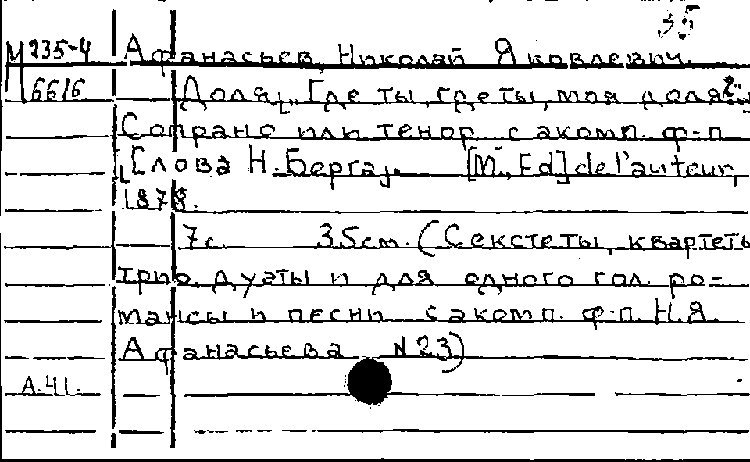 35
М 235-4 Афанасьев, Николай Яковлевич.
6616 Доля. "Где ты, где ты, моя доля?"
Сопрано или тенор с акомп. ф-п.
[Слова Н. Берга]. [M., Ed] de l'auteur,
1878.
7с. 35см. (Секстеты, квартеты
трио, дуэты и для одного гол. ро-
мансы и песни с акомп. ф-п. Н.Я.
Афанасьева N 23)
А.41.